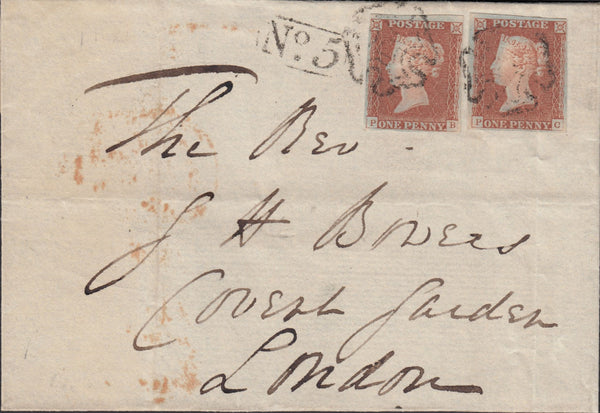 No. 5
POSTAGE POSTAGE
P ONE PENNY B P ONE PENNY C
The Rev.
J H Bowers
Covent Garden
London